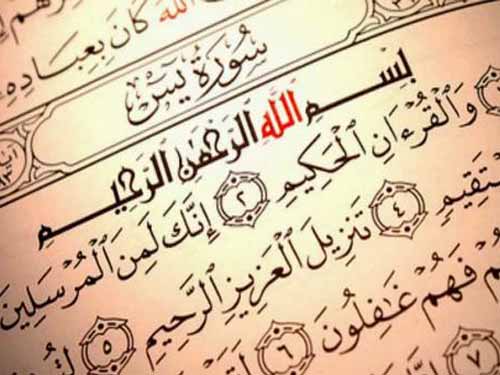 ٱللَّهَ كَانَ بِعِبَادِهِ
سُورَةُ يسٓ
بِسْمِ ٱللَّهِ ٱلرَّحْمَٰنِ ٱلرَّحِيمِ
وَٱلْقُرْءَانِ ٱلْحَكِيمِ ٢ إِنَّكَ لَمِنَ ٱلْمُرْسَلِينَ
سْتَقِيمٍ ٤ تَنزِيلَ ٱلْعَزِيزِ ٱلرَّحِيمِ ٥
فَهُمْ غَٰفِلُونَ ٦ لَقَدْ
٧